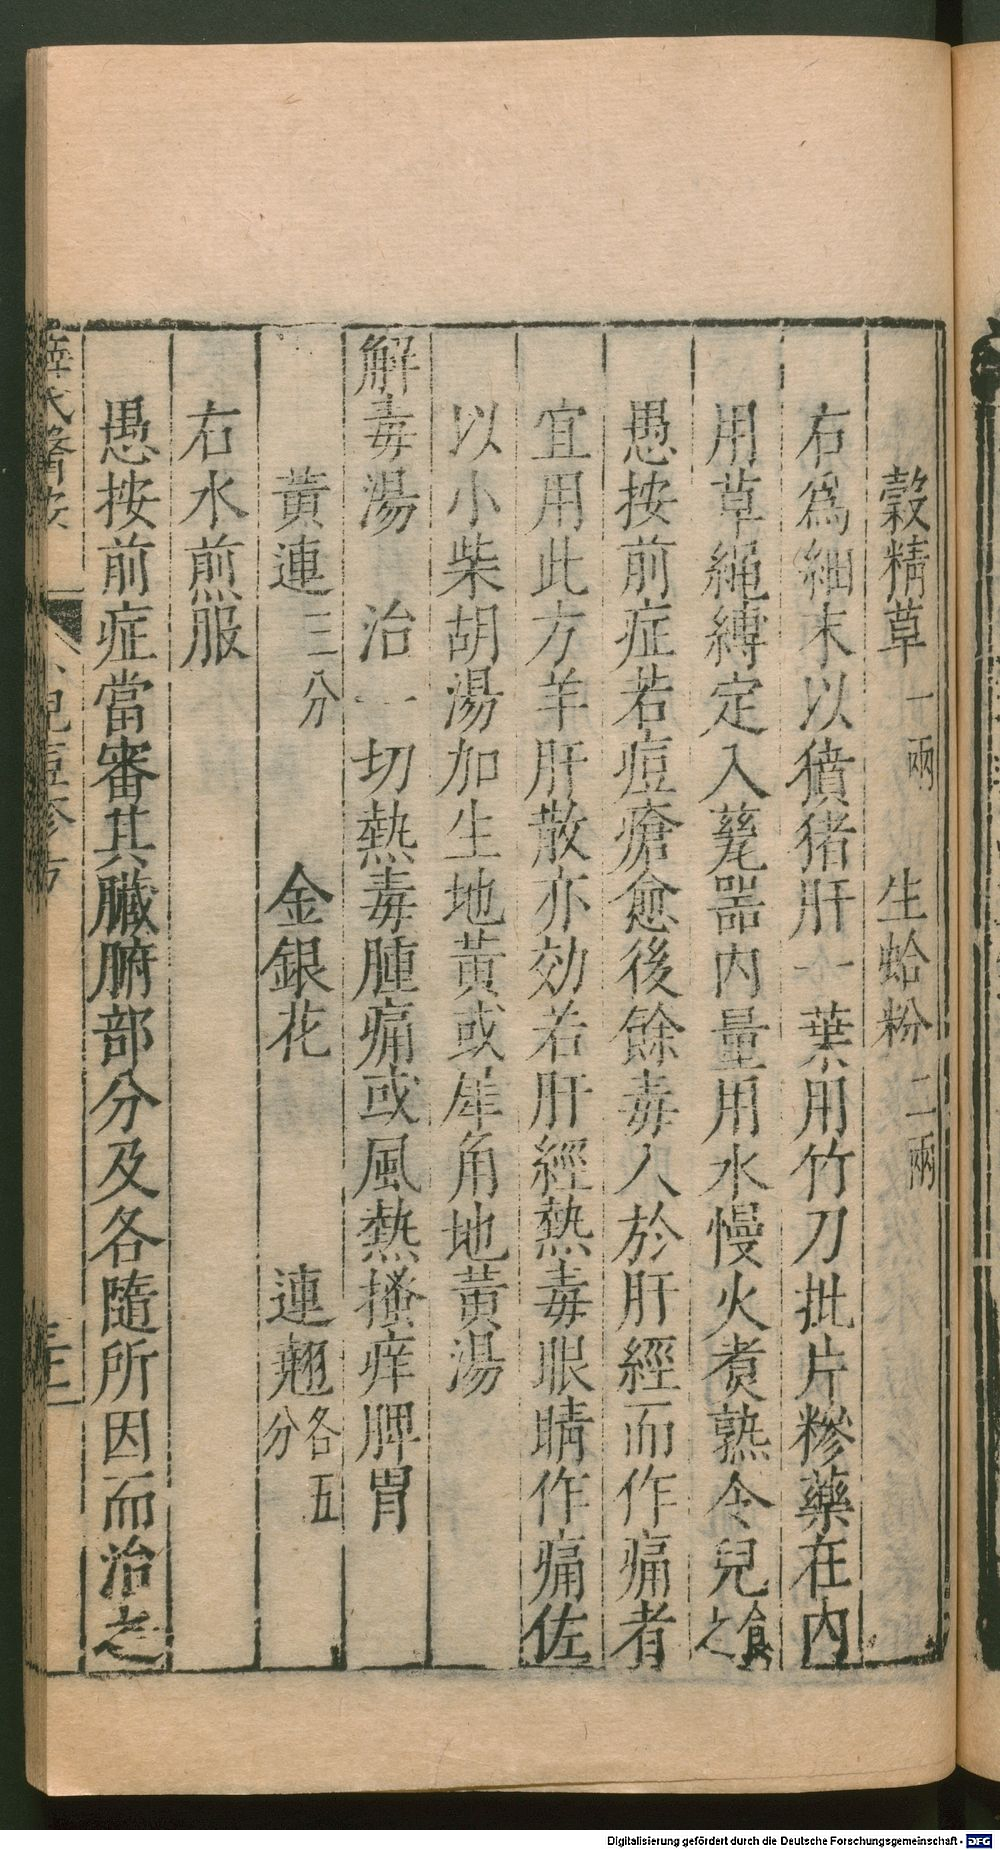 穀精草一兩　生蛤粉二兩
右爲細末以獖猪肝一葉用竹刀批片糝藥在内
用草繩縛定入甆器内量用水慢火煑熟令兒食之
愚按前症若痘瘡愈後餘毒入於肝經而作痛者
宜用此方羊肝散亦効若肝經熱毒眼睛作痛佐
以小柴胡湯加生地黃或犀角地黃湯
解毒湯　治一切熱毒腫痛或風熱搔痒脾胃
黃連三分　金銀花　連翹各五分
右水煎服
愚按前症當審其臟腑部分及各隨所因而治之
薛氏醫案　小兒痘疹方
Digitalisierung gefördert durch die Deutsche Forschungsgemeinschaft - DFG